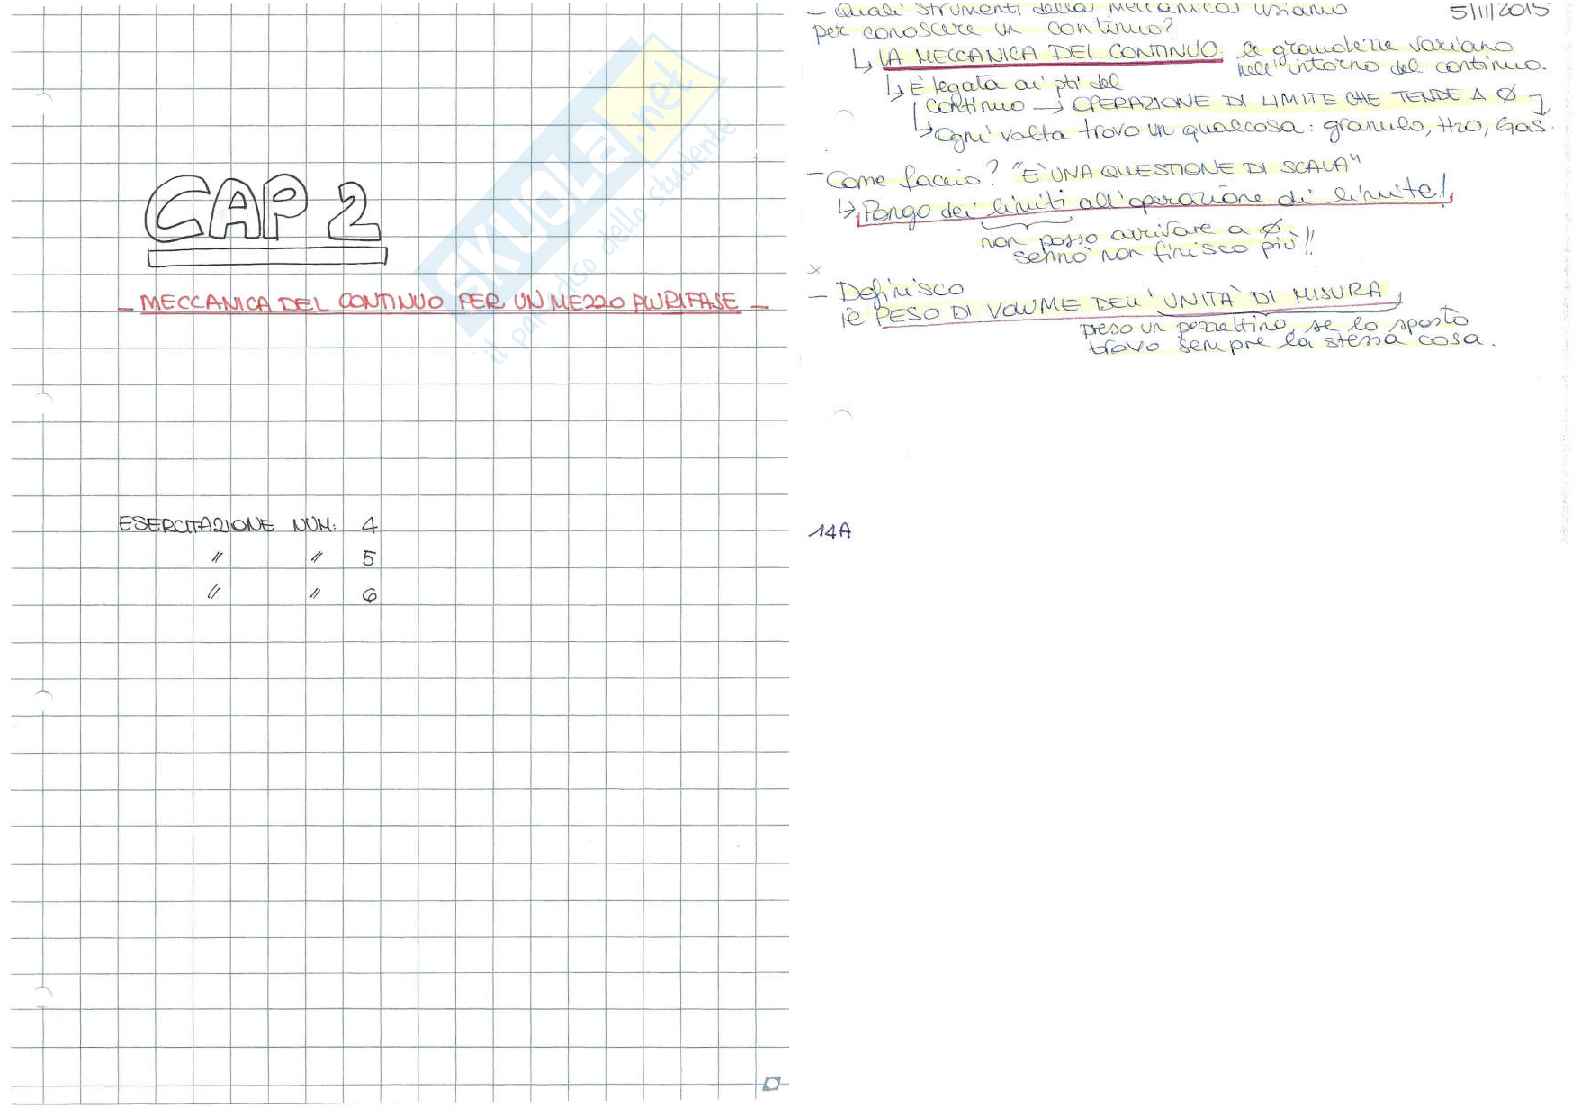 CAP 2
- MECCANICA DEL CONTINUO PER UN MEZZO PLURIFASE -
ESERCITAZIONE NUM: 4
" " 5
" " 6
SKUOLA.net
il paradiso dello studente
- Quali strumenti della meccanica usiamo 5/11/2015
per conoscere un continuo?
↳ LA MECCANICA DEL CONTINUO: le grandezze variano
nell'intorno del continuo.
↳ È legata ai pti del
continuo → OPERAZIONE DI LIMITE CHE TENDE A Ø
↳ ogni volta trovo un qualcosa: granulo, H2O, Gas.
- Come faccio? "È UNA QUESTIONE DI SCALA"
↳ Pongo dei limiti all'operazione di limite!
non posso arrivare a Ø
sennò non finisco più!!
x
- Definisco
il PESO DI VOLUME DELL'UNITÀ DI MISURA,
preso un pezzettino, se lo sposto
trovo sempre la stessa cosa.
14A